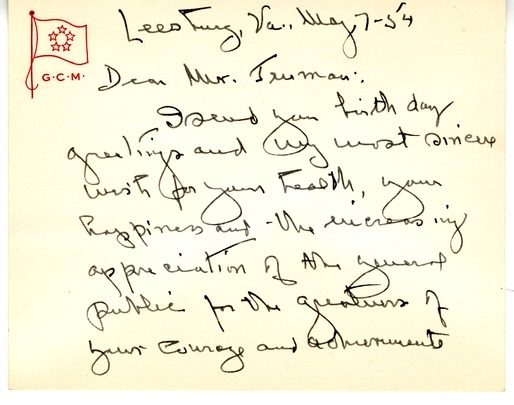 Leesburg, Va., May 7-54
G·C·M·
Dear Mr. Truman:
I send you birth day
greetings and my most sincere
wish for your health, your
happiness and the increasing
appreciation of the general
public for the greatness of
your courage and achievements